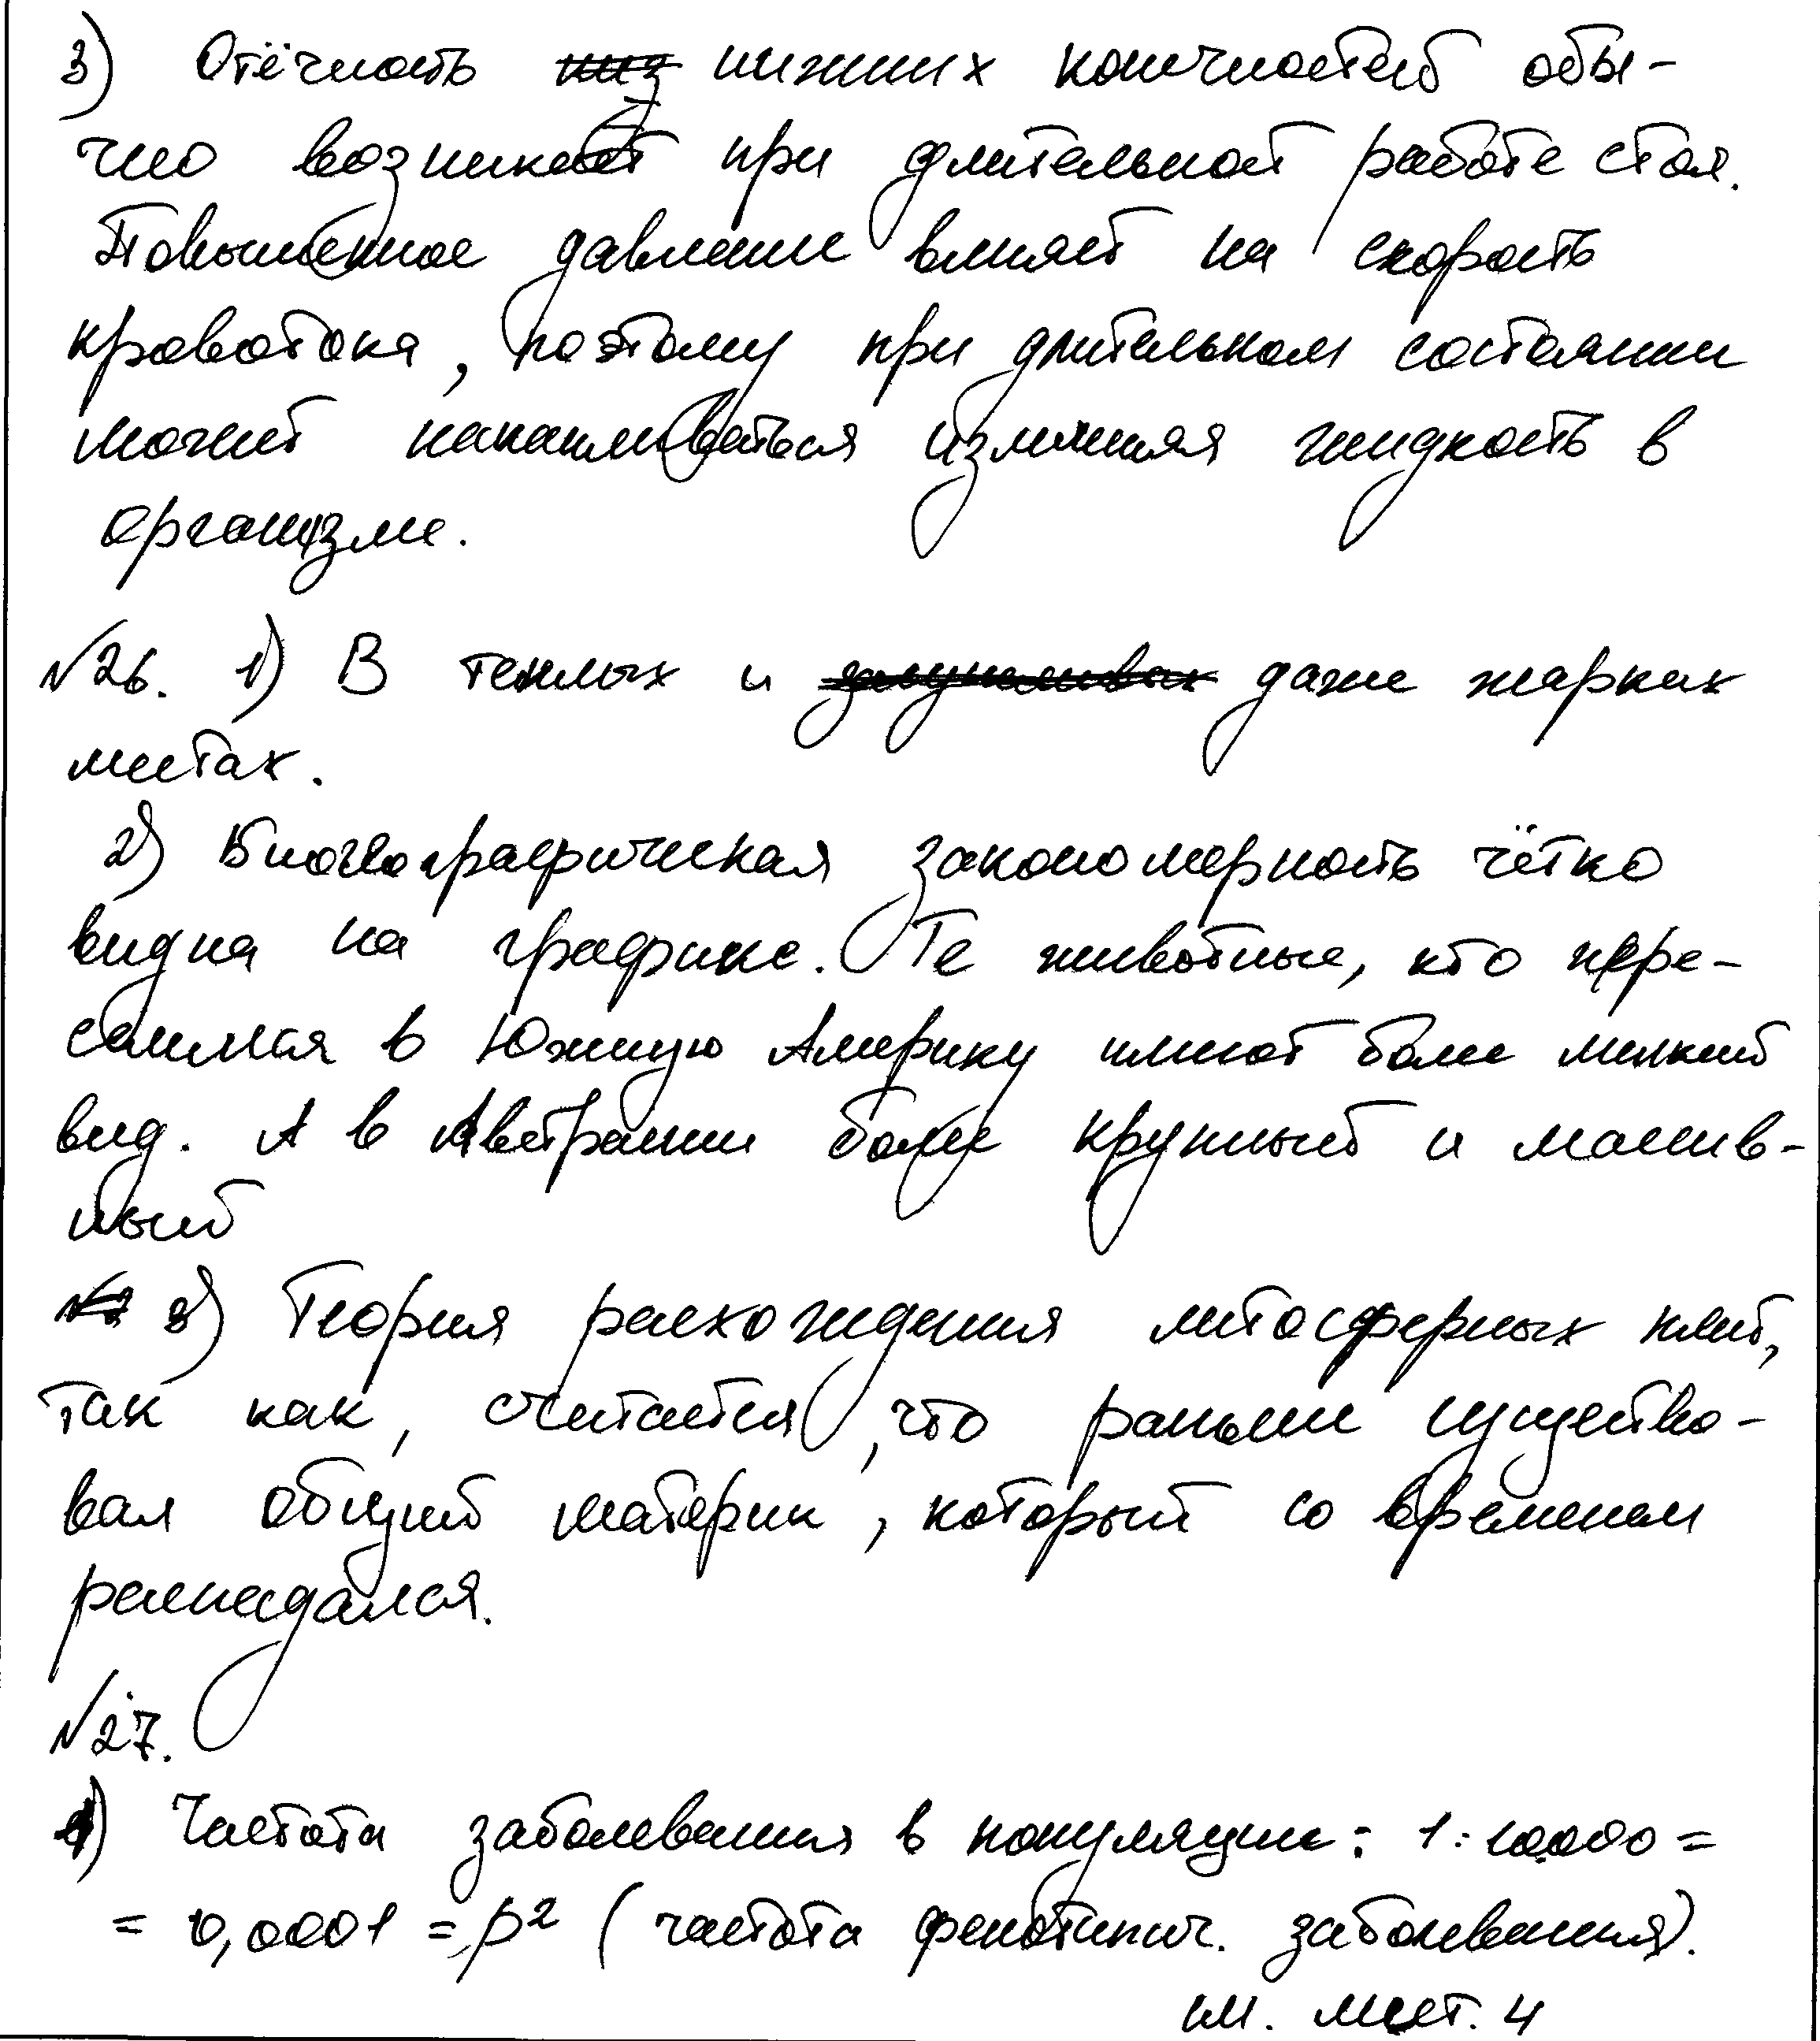 3) Отёчность низ нижних конечностей обы-
чно возникает при длительной работе стоя.
Повышенное давление влияет на скорость
кровотока, поэтому при длительном состоянии
может накапливаться излишняя жидкость в
организме.
№26. 1) В теплых и даже жарких
местах.
2) Биогеографическая закономерность чётко
видна на графике. Те животные, кто пере-
селился в Южную Америку имеют более мелкий
вид. А в Австралии более крупный и массив-
ный
3) Теория расхождения литосферных плит,
так как, считается, что раньше существо-
вал общий материк, который со временем
распадался.
№27.
1) Частота заболевания в популяции: 1:10000 =
= 0,0001 = p² (частота фенотипич. заболевания).
см. лист. 4